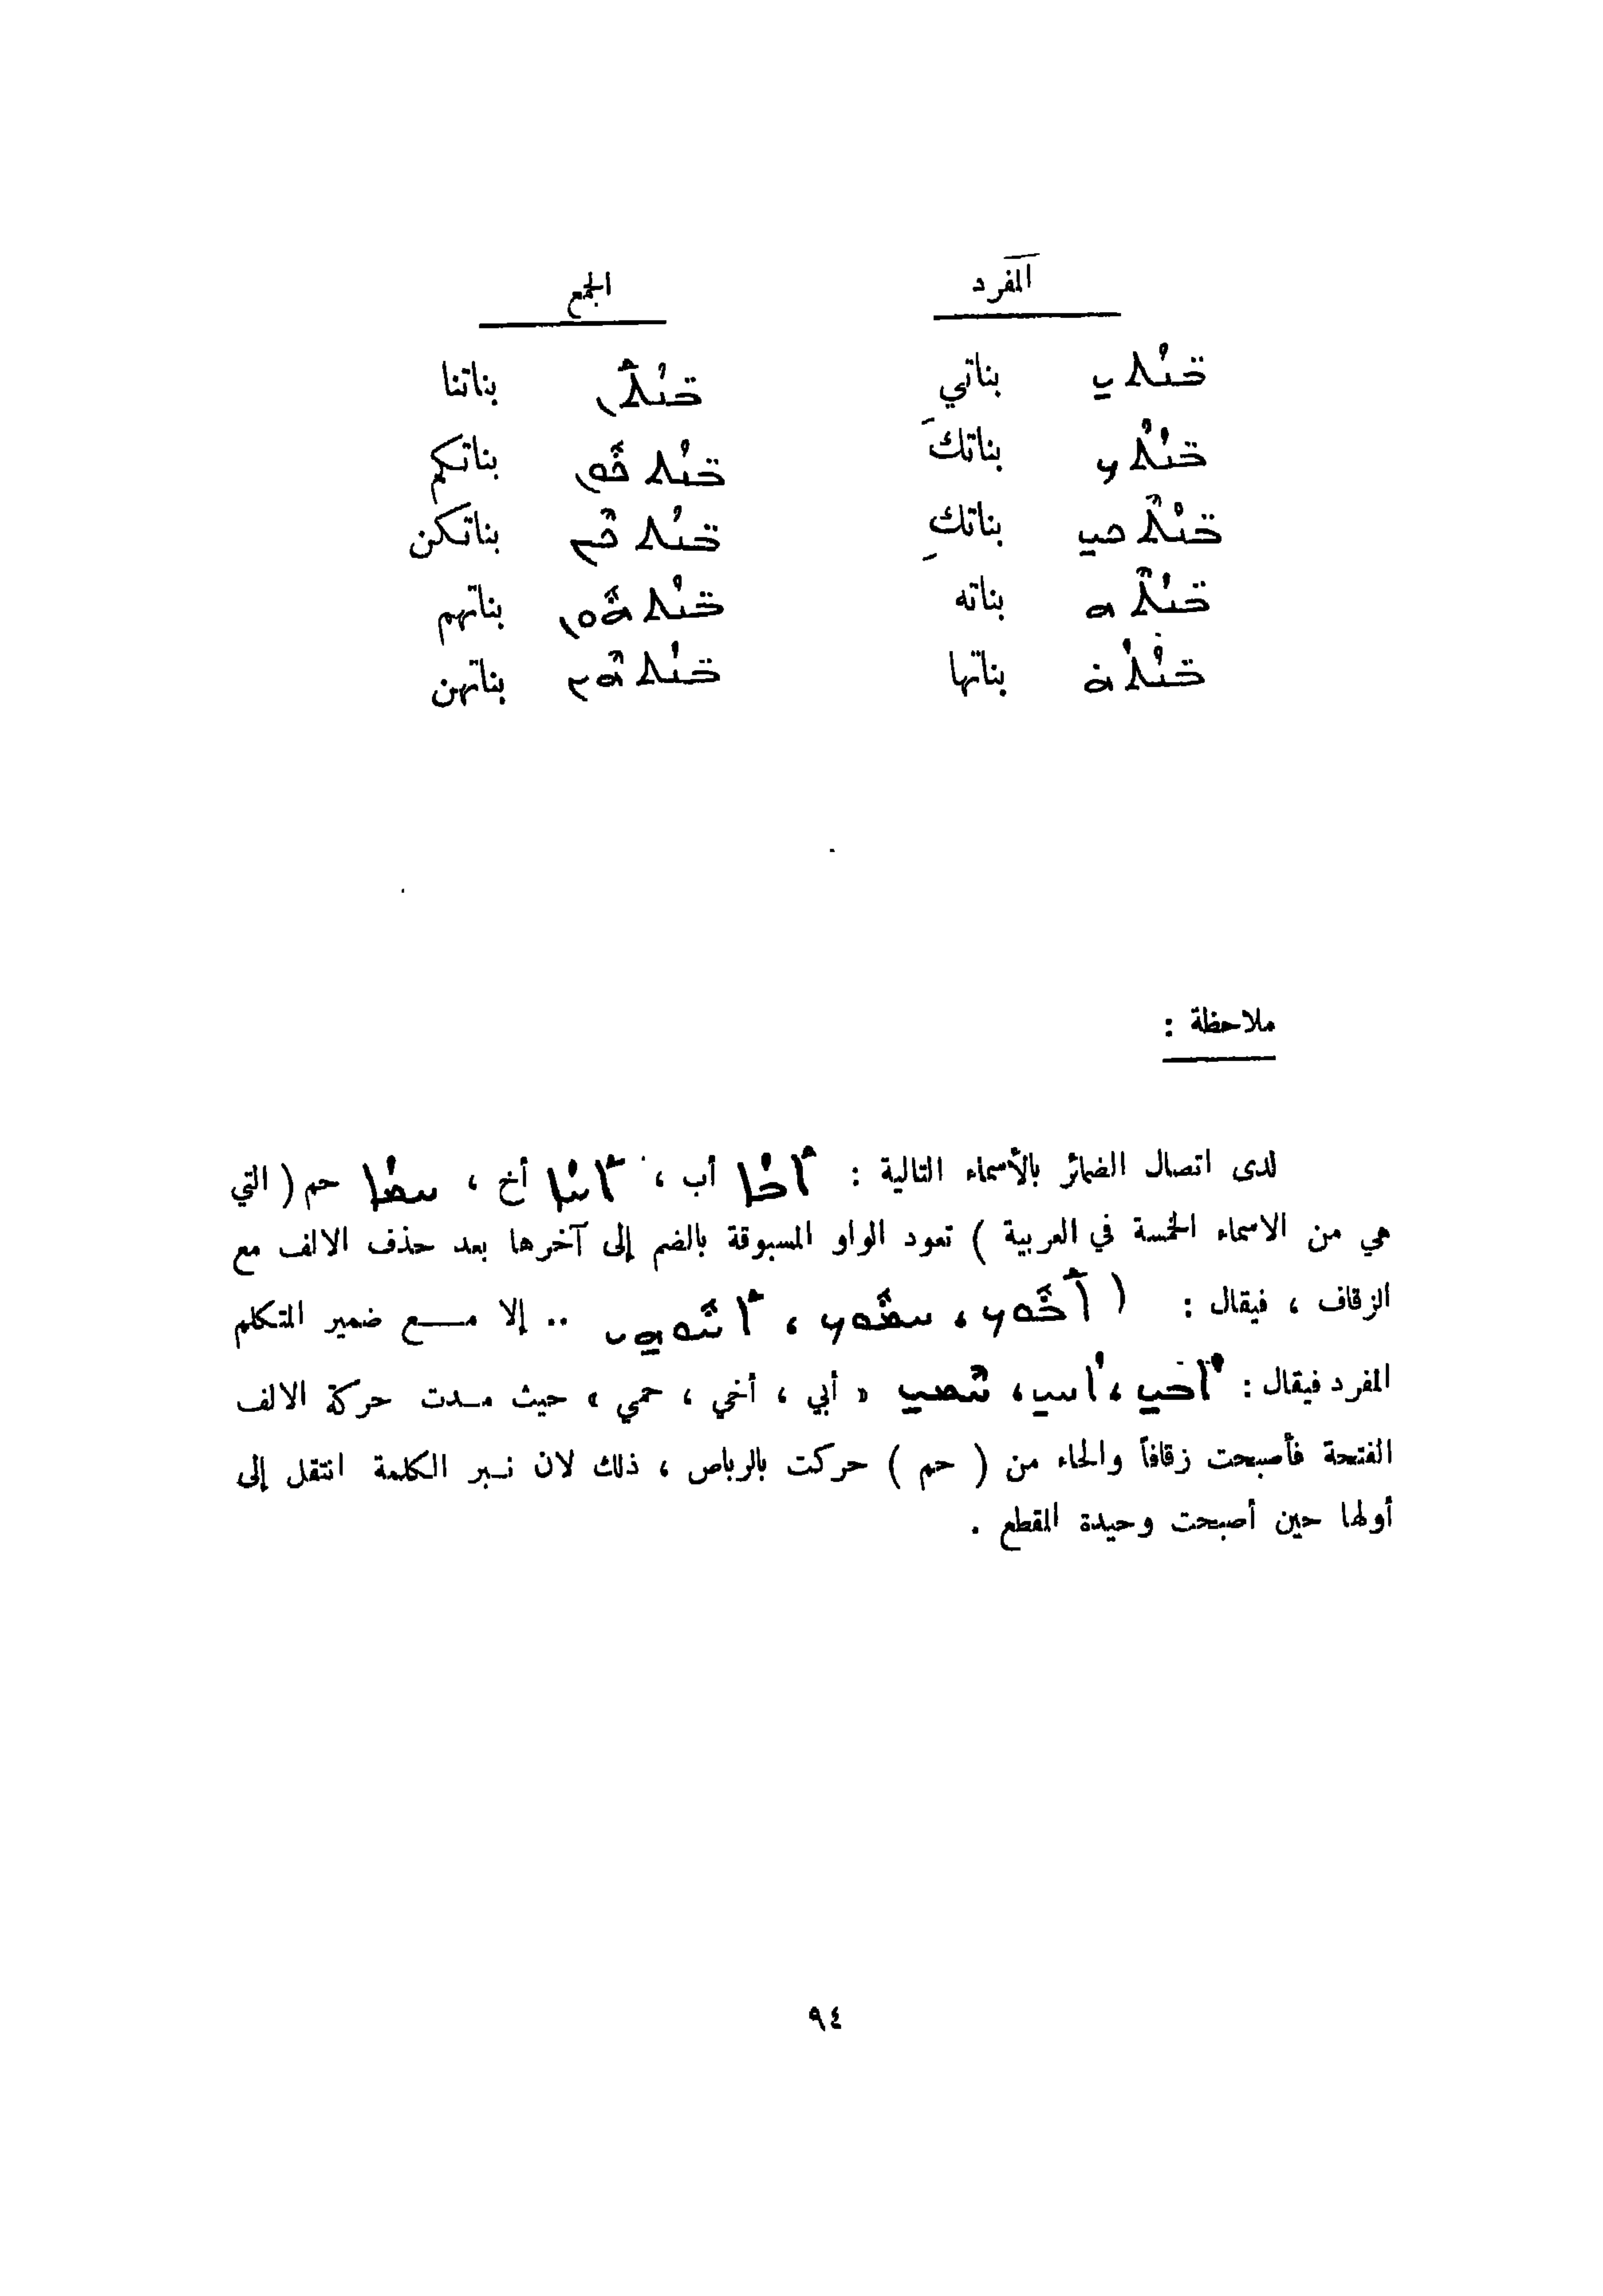 المفرد الجمع
ܒ̈ܢܳܬܝ بناتي ܒ̈ܢܳܬܰܢ بناتنا
ܒ̈ܢܳܬܳܟ بناتكَ ܒ̈ܢܳܬܟܽܘܢ بناتكم
ܒ̈ܢܳܬܶܟܝ بناتكِ ܒ̈ܢܳܬܟܶܝܢ بناتكن
ܒ̈ܢܳܬܶܗ بناته ܒ̈ܢܳܬܗܽܘܢ بناتهم
ܒ̈ܢܳܬܳܗ̇ بناتها ܒ̈ܢܳܬܗܶܝܢ بناتهن
ملاحظة :
لدى اتصال الضمائر بالأسماء التالية : ܐܰܒܳܐ أب ، ܐܰܚܳܐ أخ ، ܚܡܳܐ حم ( التي
هي من الاسماء الخمسة في العربية ) تعود الواو المسبوقة بالضم إلى آخرها بعد حذف الالف مع
الزقاف ، فيقال : ( ܐܰܒܽܘܟ ، ܚܡܽܘܟ ، ܐܰܚܽܘܗܝ .. إلا مــع ضمير المتكلم
المفرد فيقال : ܐܳܒܝ ، ܐܳܚܝ ، ܚܶܡܝ « أبي ، أخي ، حمي » حيث مــدت حركة الالف
الفتحة فأصبحت زقافاً والحاء من ( حم ) حركت بالرباص ، ذلك لان نــبر الكلمة انتقل إلى
أولها حين أصبحت وحيدة المقطع .
٩٤